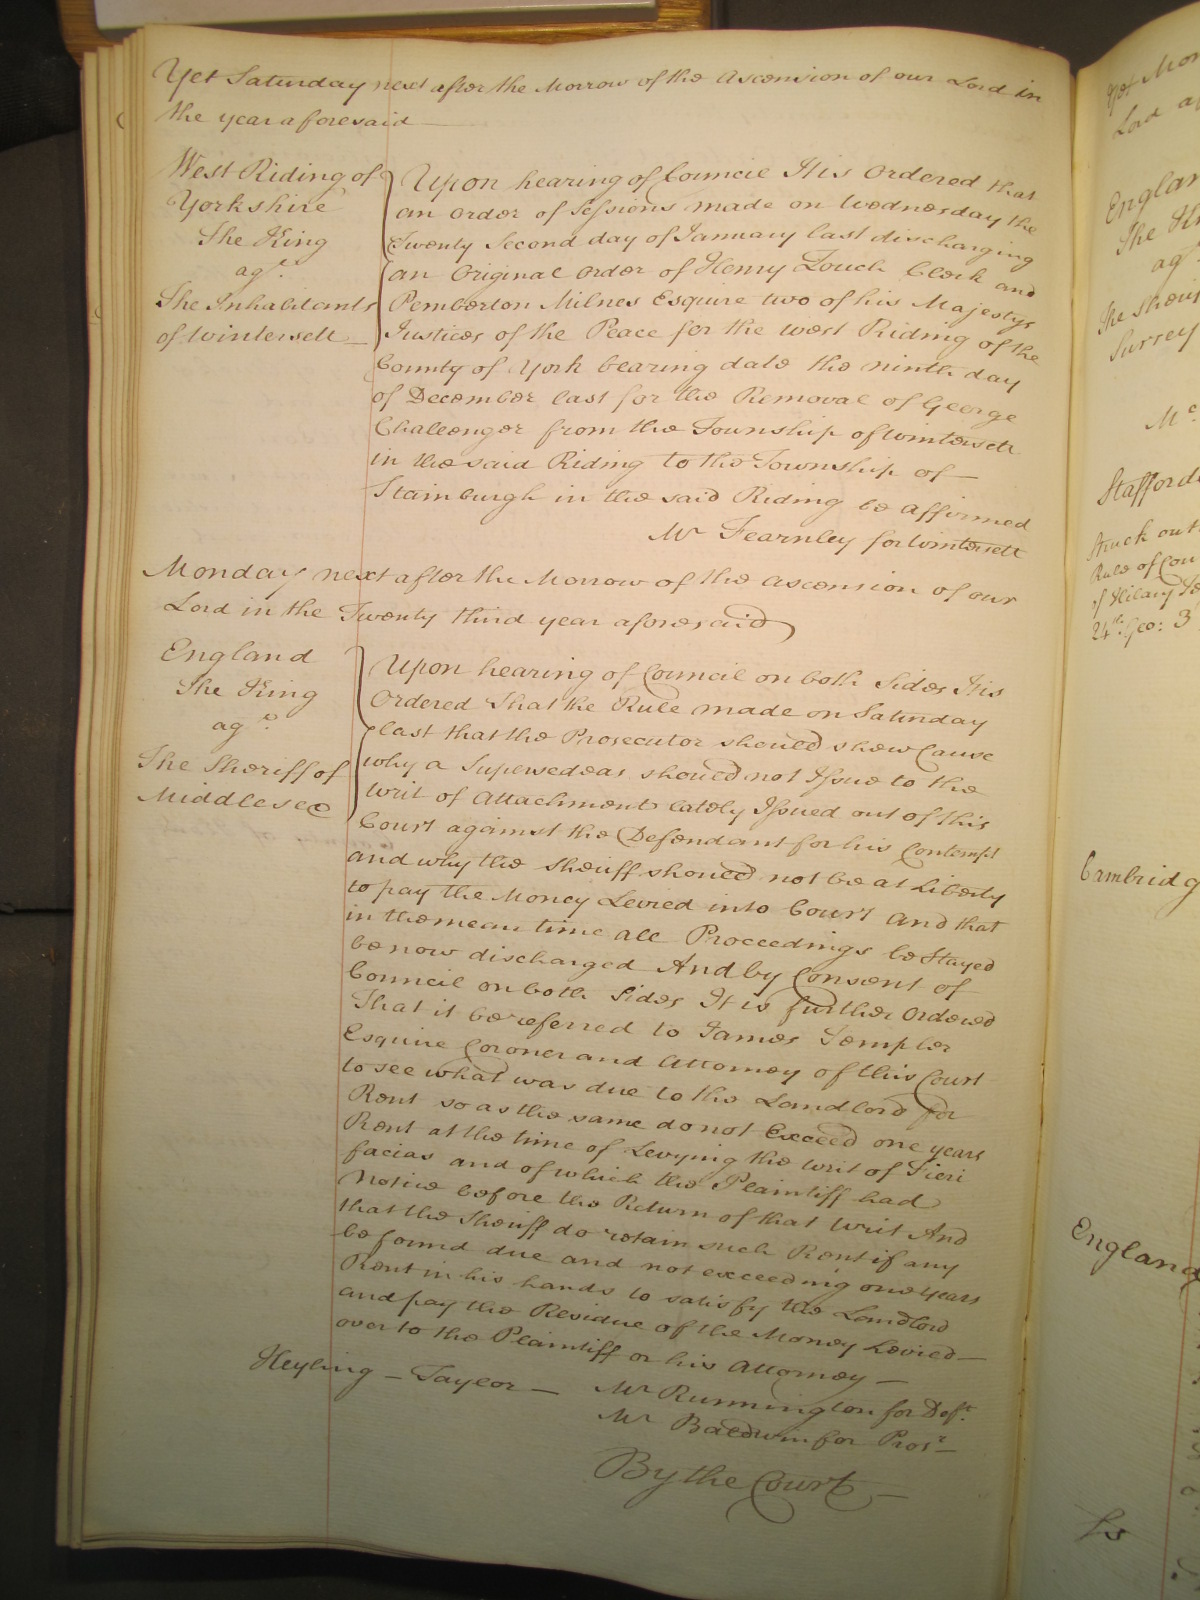 Yet Saturday next after the Morrow of the Ascension of our Lord in
the year aforesaid
West Riding of
Yorkshire
The King
agt.
The Inhabitants
of Wintersett
Upon hearing of Councic It is Ordered that
an Order of Sessions made on Wednesday the
Twenty Second day of January last discharging
an Original Order of Henry Zouch Clerk and
Pemberton Milnes Esquire two of his Majestys
Justices of the Peace for the West Riding of the
County of York bearing date the ninth day
of December last for the Removal of George
Challenger from the Township of Wintersett
in the said Riding to the Township of
Stainburgh in the said Riding be affirmed
Mr Fearnley for Wintersett
Monday next after the Morrow of the Ascension of our
Lord in the Twenty third year aforesaid
England
The King
agt.
The Sheriff of
Middlesex
Upon hearing of Council on both Sides It is
Ordered That the Rule made on Saturday
last that the Prosecutor should shew Cause
why a Supersedeas should not Issue to the
Writ of Attachment lately Issued out of this
Court against the Defendant for his Contempt
and why the Sheriff should not be at Liberty
to pay the Money Levied into Court And that
in the mean time all Proceedings be Stayed
be now discharged And by Consent of
Council on both Sides It is further Ordered
That it be referred to James Templer
Esquire Coroner and Attorney of this Court
to see what was due to the Landlord for
Rent so as the same do not Exceed one years
Rent at the time of Levying the Writ of Fieri
facias and of which the Plaintiff had
Notice before the Return of that Writ And
that the Sheriff do retain such Rent if any
be found due and not exceeding one years
Rent in his hands to satisfy the Landlord
and pay the Residue of the Money Levied
over to the Plaintiff or his Attorney
Heyling – Taylor –
Mr Runnington for Deft.
Mr Baldwin for Prosr
By the Court
England
The
ag
The Sheriff
Surrey
Mr
Staffords
Struck out
Rule of Cou
of Hilary Te
24th Geo: 3
Cambridg
England